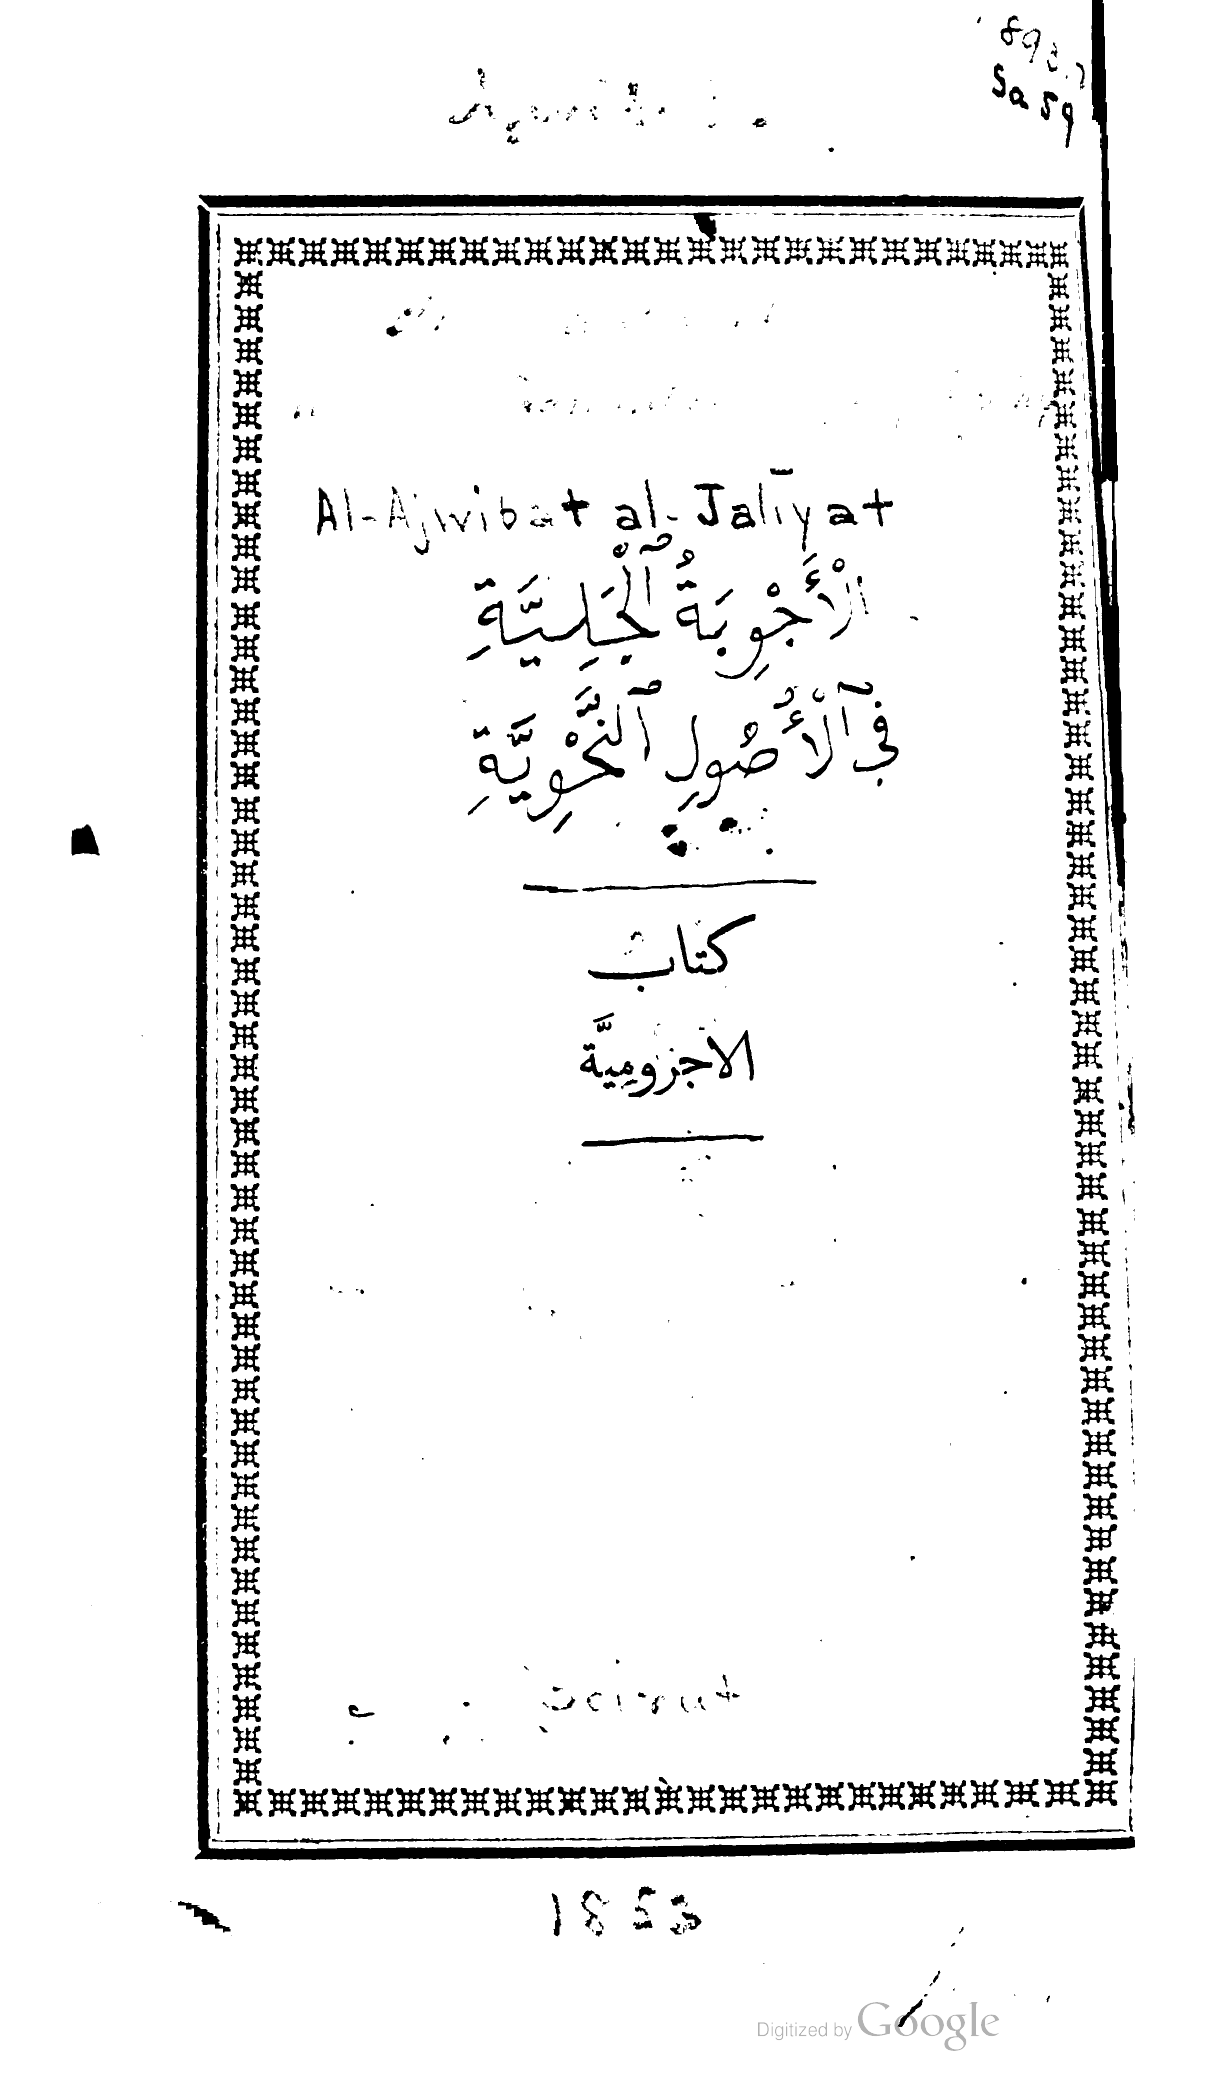 893.7
Sa 59
Al-Ajwibat al-Jalīyat
الْأَجْوِبَةُ ٱلْجَلِيَّةِ
فِي ٱلْأُصُولِ ٱلنَّحْوِيَّةِ
كتاب
الاجزوميَّة
Beirut
1853
Digitized by Google